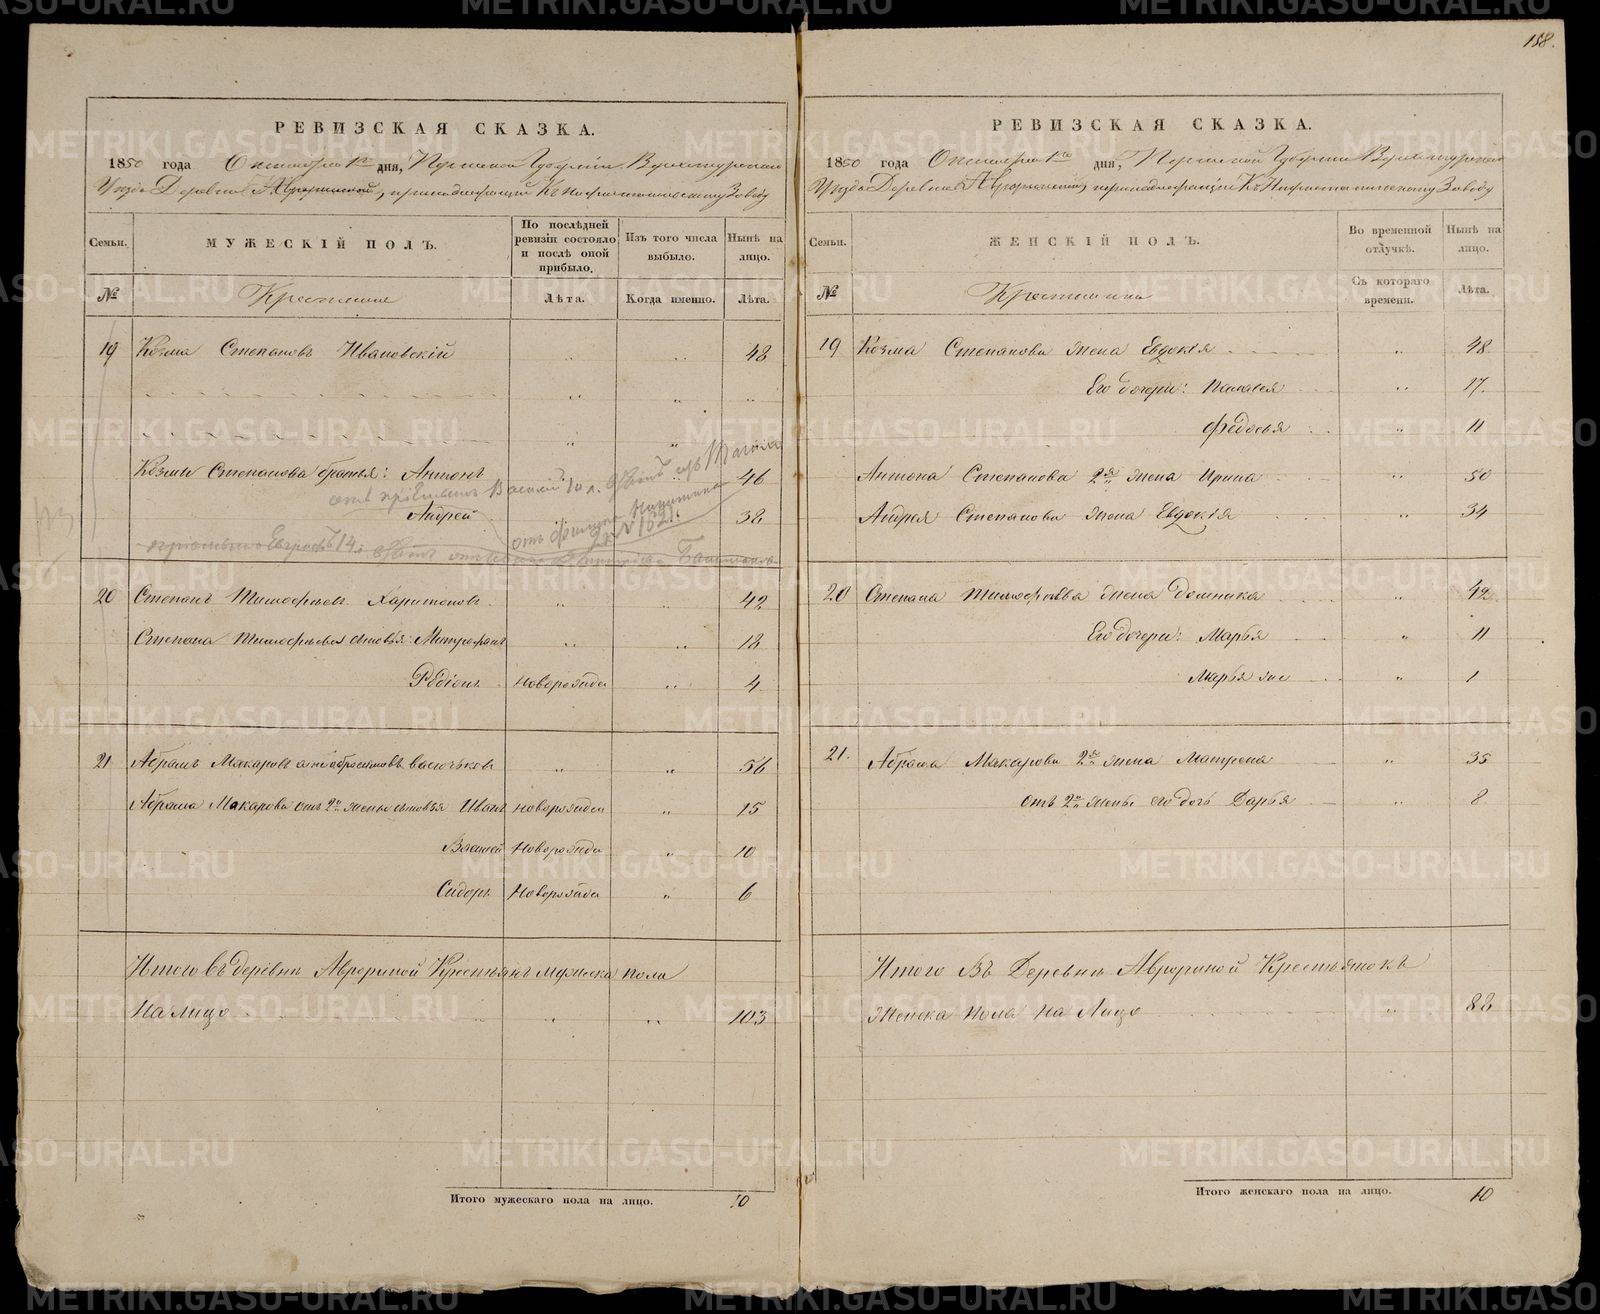 158.
РЕВИЗСКАЯ СКАЗКА.
1850 года Октября 1го дня, Пермской Губернии Верхотурскаго
Уезда Деревни Авроринской, принадлежащей Къ Нижнетагильскому Заводу
Семьи.
МУЖЕСКІЙ ПОЛЪ.
По послѣдней ревизіи состояло и послѣ оной прибыло.
Изъ того числа выбыло.
Нынѣ на лицо.
№
Крестьяне
Лѣта.
Когда именно.
Лѣта.
19 Козма Степановъ Ивановскій 48
Козмы Степанова братья: Антонъ 46
Андрей 38
20 Степанъ Тимофѣевъ Харитоновъ 42
Степана Тимофѣева сыновья: Митрофанъ 18
Родіонъ новорожден 4
21 Абрамъ Макаровъ 56
Абрама Макарова отъ 2й жены сыновья Иванъ новорожден 15
Василей Новорожден 10
Сидоръ Новорожден 6
Итого въ деревнѣ Аврориной Крестьянъ мужеска пола
На лицо 103
Итого мужескаго пола на лицо. 10
РЕВИЗСКАЯ СКАЗКА.
1850 года Октября 1го дня, Пермской Губернии Верхотурскаго
Уезда Деревни Авроринской, принадлежащей Къ Нижнетагильскому Заводу
Семьи.
ЖЕНСКІЙ ПОЛЪ.
Во временной отлучкѣ.
Нынѣ на лицо.
№
Крестьянки
Съ котораго времени.
Лѣта.
19 Козма Степанова жена Евдокія 48
Его дочери: Палагея 17.
Федосья 11
Антона Степанова 2я жена Ирина 50
Андрея Степанова жена Евдокія 34
20 Степана Тимофѣева жена Домника 42
Его дочери: Марья 11
Марья же 1
21. Абрама Макарова 2я жена Матрена 35
Отъ 2й жены его дочь Дарья 8
Итого Въ Деревнѣ Аврориной Крестьянокъ
Женска Пола На Лицо 88
Итого женскаго пола на лицо. 10
METRIKI.GASO-URAL.RU